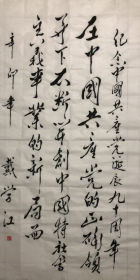 纪念中国共产党诞辰九十周年
在中国共产党的正确领
导下不断开创中国特色社会
主义事业的新局面
辛卯年
戴学江